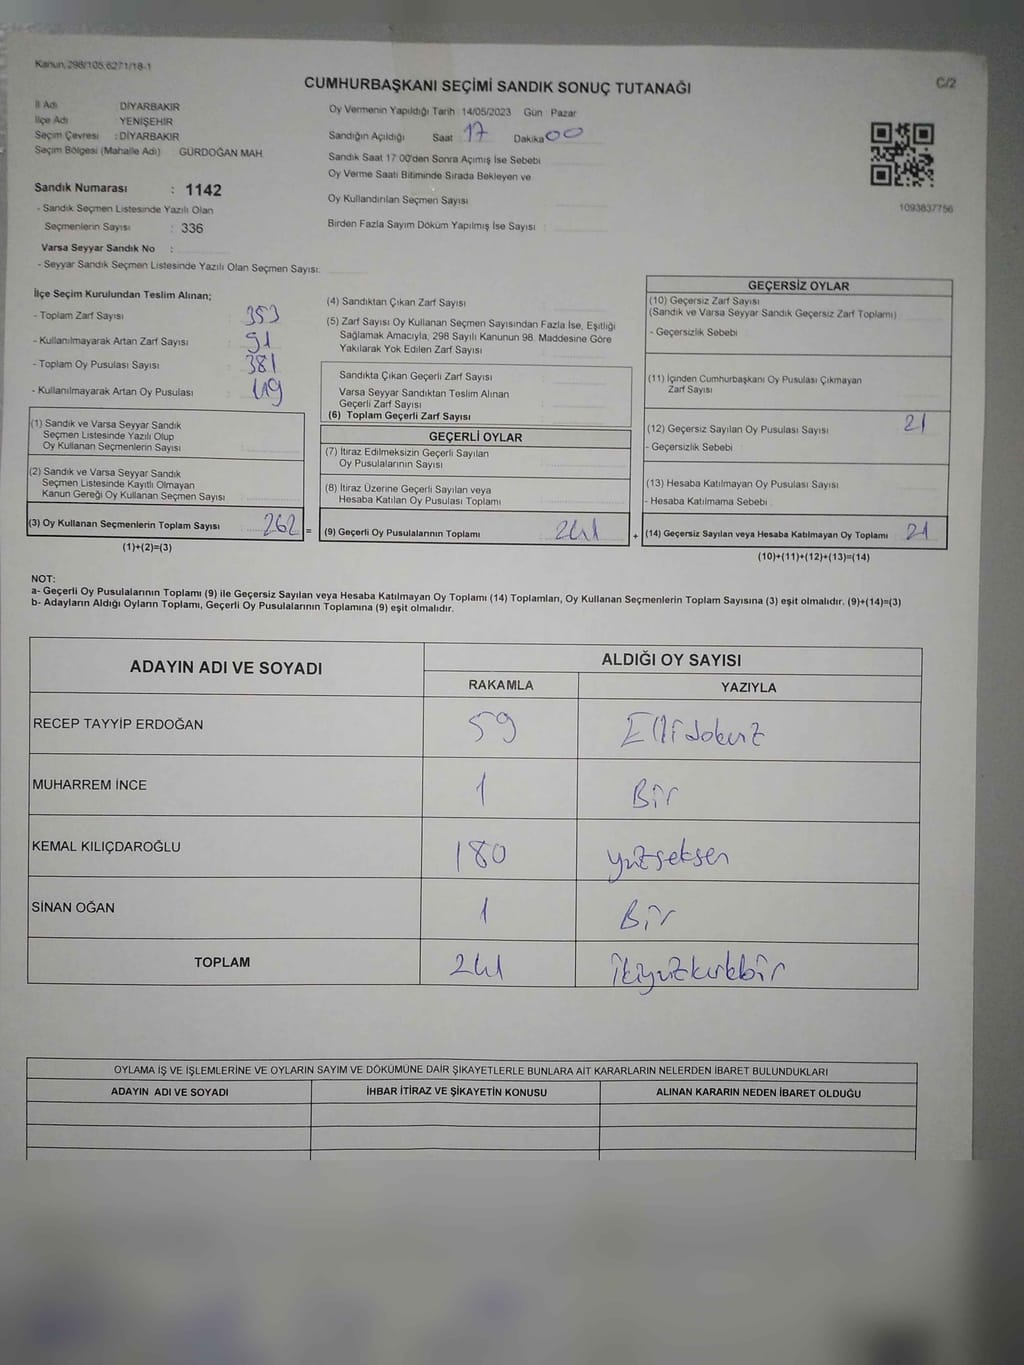 Kanun, 298/105,6271/18-1
C/2
CUMHURBAŞKANI SEÇİMİ SANDIK SONUÇ TUTANAĞI
İl Adı DİYARBAKIR
İlçe Adı YENİŞEHİR
Seçim Çevresi : DİYARBAKIR
Seçim Bölgesi (Mahalle Adı) GÜRDOĞAN MAH
Sandık Numarası : 1142
- Sandık Seçmen Listesinde Yazılı Olan
Seçmenlerin Sayısı : 336
Varsa Seyyar Sandık No :
- Seyyar Sandık Seçmen Listesinde Yazılı Olan Seçmen Sayısı:
Oy Vermenin Yapıldığı Tarih 14/05/2023 Gün Pazar
Sandığın Açıldığı Saat 17 Dakika 00
Sandık Saat 17 00'den Sonra Açımış İse Sebebi
Oy Verme Saati Bitiminde Sırada Bekleyen ve
Oy Kullandırılan Seçmen Sayısı
Birden Fazla Sayım Döküm Yapılmış İse Sayısı
1093837756
İlçe Seçim Kurulundan Teslim Alınan;
- Toplam Zarf Sayısı 353
- Kullanılmayarak Artan Zarf Sayısı 91
- Toplam Oy Pusulası Sayısı 381
- Kullanılmayarak Artan Oy Pusulası 119
(1) Sandık ve Varsa Seyyar Sandık
Seçmen Listesinde Yazılı Olup
Oy Kullanan Seçmenlerin Sayısı
(2) Sandık ve Varsa Seyyar Sandık
Seçmen Listesinde Kayıtlı Olmayan
Kanun Gereği Oy Kullanan Seçmen Sayısı
(3) Oy Kullanan Seçmenlerin Toplam Sayısı 262 =
(1)+(2)=(3)
(4) Sandıktan Çıkan Zarf Sayısı
(5) Zarf Sayısı Oy Kullanan Seçmen Sayısından Fazla İse, Eşitliği
Sağlamak Amacıyla, 298 Sayılı Kanunun 98. Maddesine Göre
Yakılarak Yok Edilen Zarf Sayısı
Sandıkta Çıkan Geçerli Zarf Sayısı
Varsa Seyyar Sandıktan Teslim Alınan
Geçerli Zarf Sayısı
(6) Toplam Geçerli Zarf Sayısı
GEÇERLİ OYLAR
(7) İtiraz Edilmeksizin Geçerli Sayılan
Oy Pusulalarının Sayısı
(8) İtiraz Üzerine Geçerli Sayılan veya
Hesaba Katılan Oy Pusulası Toplamı
(9) Geçerli Oy Pusulalarının Toplamı 241 +
GEÇERSİZ OYLAR
(10) Geçersiz Zarf Sayısı
(Sandık ve Varsa Seyyar Sandık Geçersiz Zarf Toplamı)
- Geçersizlik Sebebi
(11) İçinden Cumhurbaşkanı Oy Pusulası Çıkmayan
Zarf Sayısı
(12) Geçersiz Sayılan Oy Pusulası Sayısı 21
- Geçersizlik Sebebi
(13) Hesaba Katılmayan Oy Pusulası Sayısı
- Hesaba Katılmama Sebebi
(14) Geçersiz Sayılan veya Hesaba Katılmayan Oy Toplamı 21
(10)+(11)+(12)+(13)=(14)
NOT:
a- Geçerli Oy Pusulalarının Toplamı (9) ile Geçersiz Sayılan veya Hesaba Katılmayan Oy Toplamı (14) Toplamları, Oy Kullanan Seçmenlerin Toplam Sayısına (3) eşit olmalıdır. (9)+(14)=(3)
b- Adayların Aldığı Oyların Toplamı, Geçerli Oy Pusulalarının Toplamına (9) eşit olmalıdır.
ADAYIN ADI VE SOYADI ALDIĞI OY SAYISI
RAKAMLA YAZIYLA
RECEP TAYYİP ERDOĞAN 59 Ellidokuz
MUHARREM İNCE 1 Bir
KEMAL KILIÇDAROĞLU 180 yüzseksen
SİNAN OĞAN 1 Bir
TOPLAM 241 ikiyüzkırkbir
OYLAMA İŞ VE İŞLEMLERİNE VE OYLARIN SAYIM VE DÖKÜMÜNE DAİR ŞİKAYETLERLE BUNLARA AİT KARARLARIN NELERDEN İBARET BULUNDUKLARI
ADAYIN ADI VE SOYADI İHBAR İTİRAZ VE ŞİKAYETİN KONUSU ALINAN KARARIN NEDEN İBARET OLDUĞU